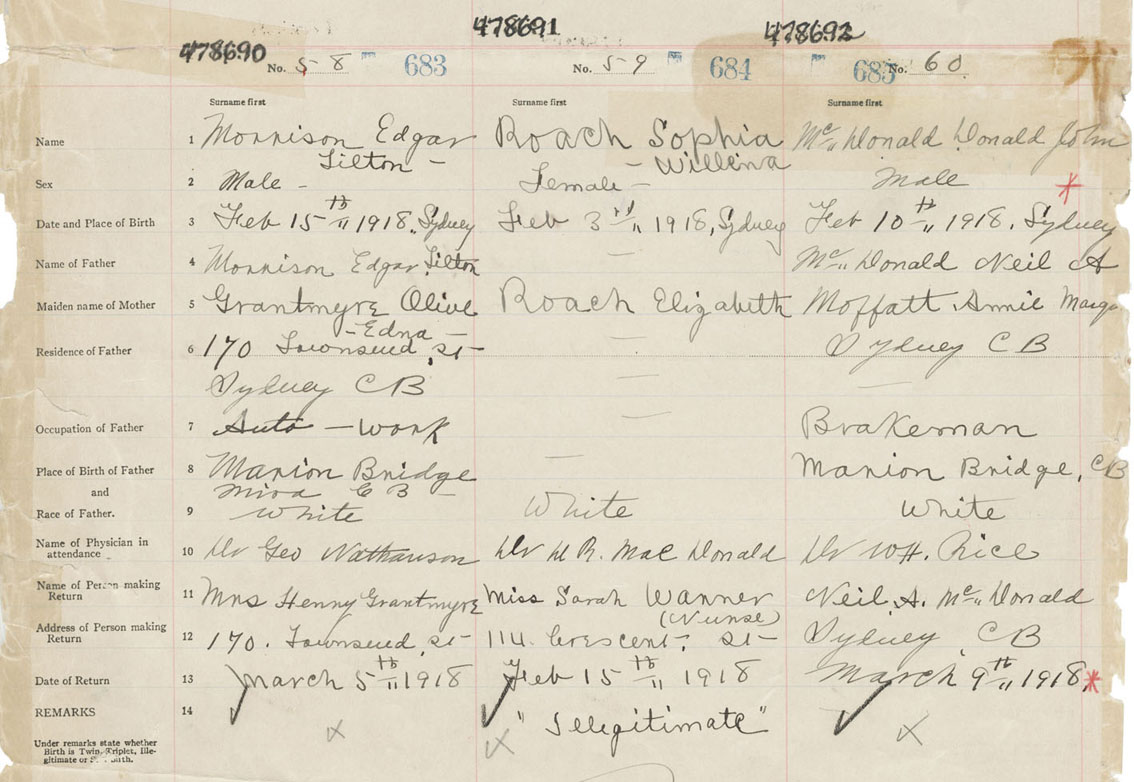 478690 478691 478692
No. 58 683 No. 59 684 685 No. 60
Surname first Surname first Surname first
Name 1 Morrison Edgar Roach Sophia Mc„ Donald Donald John
Tilton – – Willena
Sex 2 Male – Female – Male *
Date and Place of Birth 3 Feb 15th„ 1918, Sydney Feb 3rd„ 1918, Sydney Feb 10th„ 1918, Sydney
Name of Father 4 Morrison Edgar Tilton — Mc„ Donald Neil A
Maiden name of Mother 5 Grantmyre Olive Roach Elizabeth Moffatt Annie
– Edna –
Residence of Father 6 170 Townsend, St – — Sydney CB
Sydney CB — —
Occupation of Father 7 Auto – work — Brakeman
Place of Birth of Father 8 Marion Bridge — Marion Bridge, CB
and Mira C B –
Race of Father. 9 White White White
Name of Physician in
attendance 10 Dr Geo Nathanson Dr W R. Mac Donald Dr W H. Rice
Name of Person making
Return 11 Mrs Henry Grantmyre Miss Sarah Wanner Neil A. Mc„ Donald
(Nurse)
Address of Person making
Return 12 170. Townsend, St – 114. Crescent, St – Sydney, CB
Date of Return 13 March 5th„ 1918 Feb 15th„ 1918 March 9th„ 1918, *
REMARKS 14 "Illegitimate"
x x x
Under remarks state whether
Birth is Twin, Triplet, Ille-
gitimate or